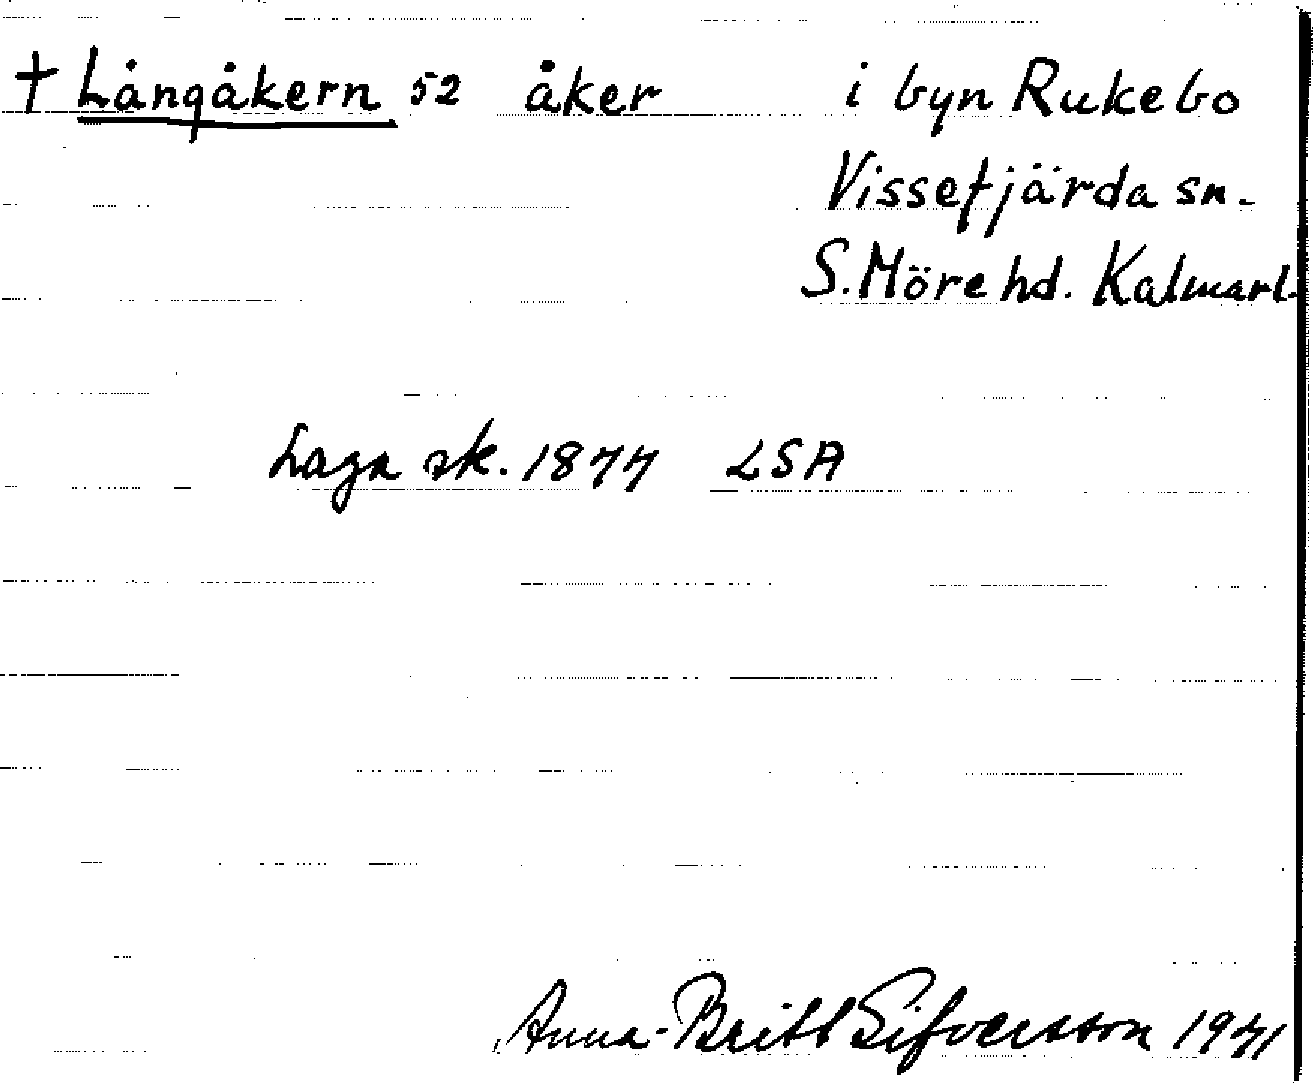 † Långåkern 52 åker i byn Rukebo
Vissefjärda sn.
S. Möre hd. Kalmar l.
Laga sk. 1877 LSA
Anna-Britt Sifversson 1971